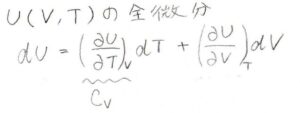 U(V,T)の全微分
dU = (∂U/∂T)_V dT + (∂U/∂V)_T dV
C_V